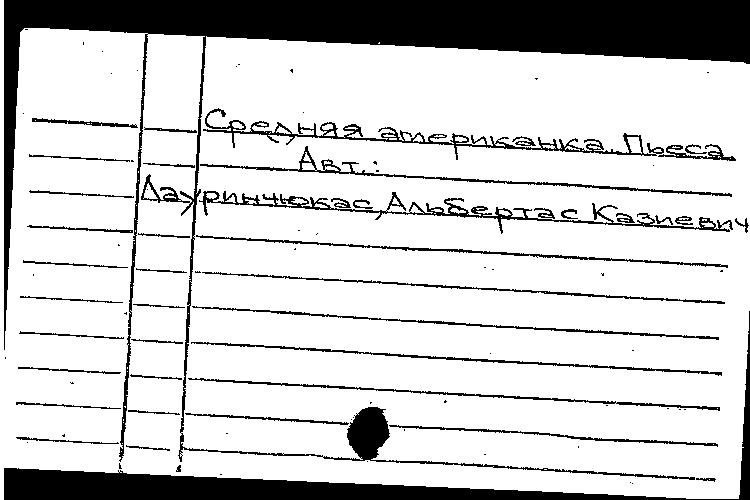 Средняя американка. Пьеса.
Авт.:
Лауринчюкас, Альбертас Казиевич